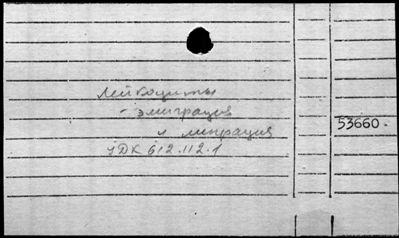 Лейкоциты
- эмиграция
и миграция
УДК 612.112.1
53660.